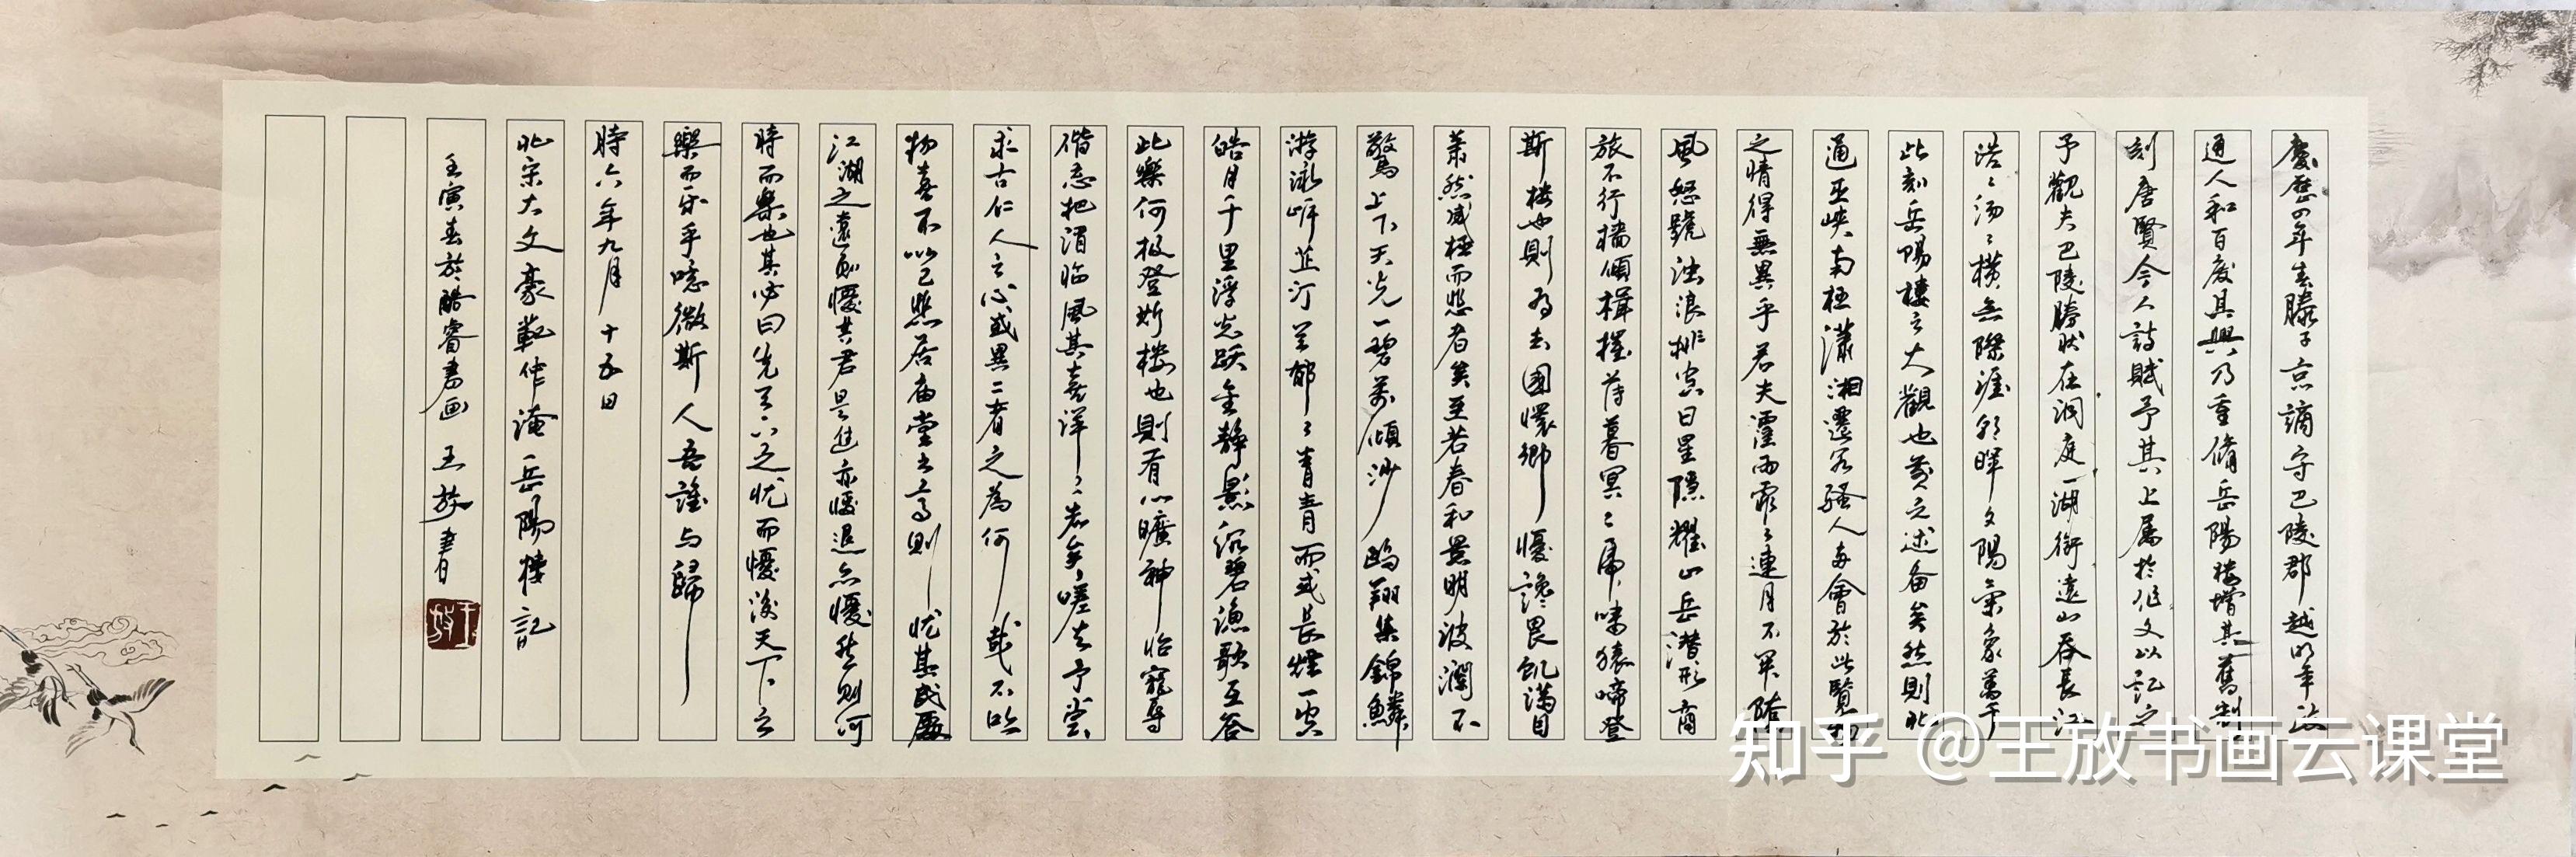 慶歷四年春滕子京謫守巴陵郡越明年政
通人和百废具興乃重脩岳陽楼增其舊制
刻唐賢今人詩賦予其上屬於作文以記之
予觀夫巴陵勝狀在洞庭一湖銜遠山吞長江
浩〻湯〻橫無際涯朝暉夕陽氣象萬千
此刻岳陽樓之大觀也之述备矣然則北
通巫峡南極瀟湘遷客騷人多會於此覽物
之情得無異乎若夫霪雨霏〻連月不開陰
風怒號浊浪排空日星隱耀山岳潛形商
旅不行檣傾楫摧薄暮冥〻虎嘯猿啼登
斯楼也則有去國懷鄉憂讒畏飢滿目
蕭然感極而悲者矣至若春和景明波瀾不
驚上下天光一碧萬傾沙鷗翔集錦鱗
游泳岸芷汀兰郁〻青青而或長煙一空
皓月千里浮光跃金靜影沉碧漁歌互答
此樂何极登斯楼也則有心曠神怡寵辱
偕忘把酒临風其喜洋〻者矣嗟夫予嘗
求古仁人之心或異二者之為何哉不以
物喜不以己悲居庙堂之高則忧其民處
江湖之遠則憂其君是進亦憂退亦憂然則何
時而樂也其必曰先天下之忧而憂後天下之
樂而乐乎噫微斯人吾誰与歸
時六年九月十五日
北宋大文豪範仲淹岳陽樓記
壬寅春於酷睿書画王放書
王放
知乎 @王放书画云课堂